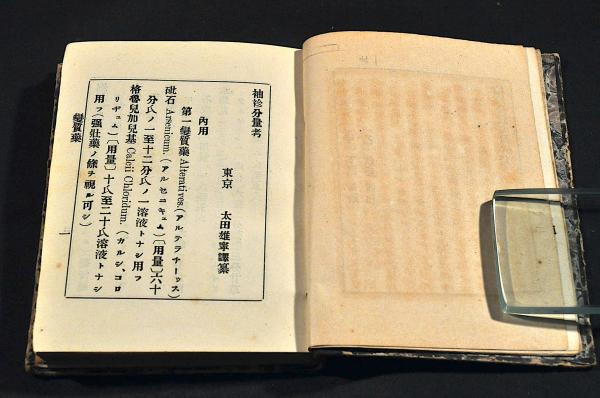 袖珍分量考
東京 太田雄寧譯纂
內用
第一變質藥 Alteratives.(アルテラチーフス)
砒石 Arsenicum.(アルセニキュム)〔用量〕六十
分氏ノ一至十二分氏ノ一溶液トナシ用フ
格魯兒加兒基 Calcii Chloridum.(カルシ、コロ
リヂュム)〔用量〕十氏至二十氏溶液トナシ
用フ(强壯藥ノ條ヲ視ル可シ)
變質藥
一